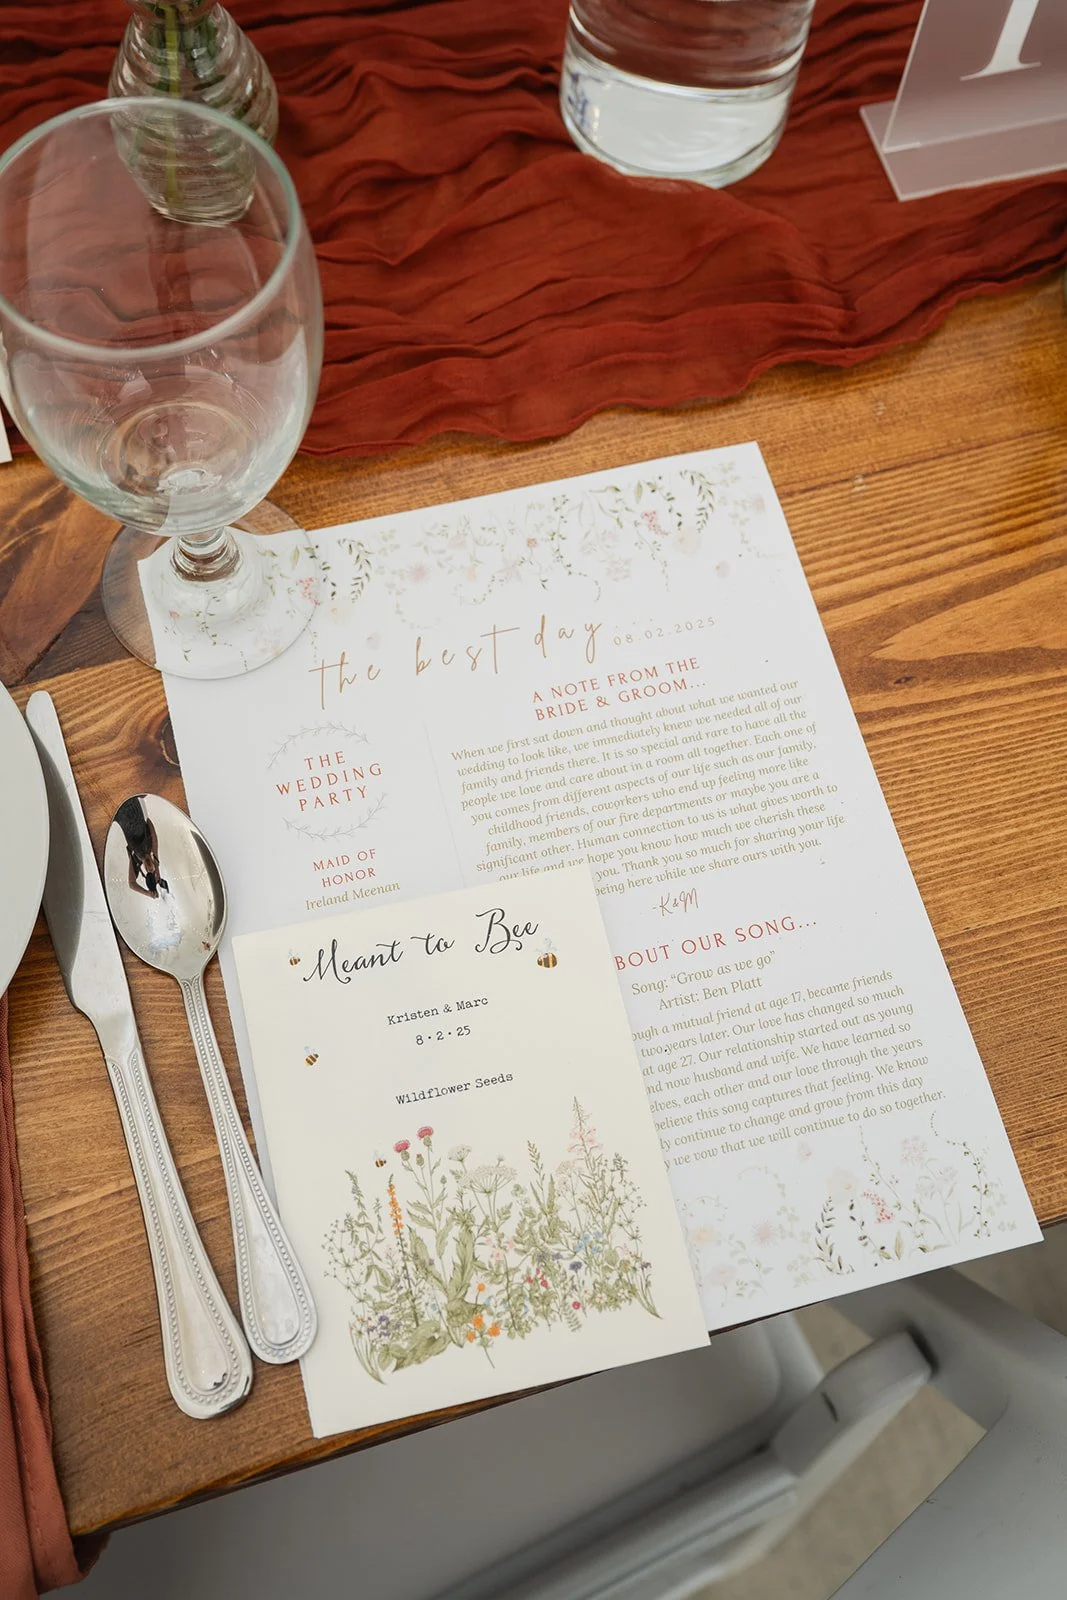 1
the best day....
08.02.2025
THE
WEDDING
PARTY
MAID OF
HONOR
Ireland Meenan
A NOTE FROM THE
BRIDE & GROOM...
When we first sat down and thought about what we wanted our
wedding to look like, we immediately knew we needed all of our
family and friends there. It is so special and rare to have all the
people we love and care about in a room all together. Each one of
you comes from different aspects of our life such as our family,
childhood friends, coworkers who end up feeling more like
family, members of our fire departments or maybe you are a
significant other. Human connection to us is what gives worth to
our life and we hope you know how much we cherish these
you. Thank you so much for sharing your life
being here while we share ours with you.
-K&M
BOUT OUR SONG...
Song: "Grow as we go"
Artist: Ben Platt
ough a mutual friend at age 17, became friends
two years later. Our love has changed so much
at age 27. Our relationship started out as young
nd now husband and wife. We have learned so
elves, each other and our love through the years
believe this song captures that feeling. We know
ly continue to change and grow from this day
y we vow that we will continue to do so together.
Meant to Bee
Kristen & Marc
8·2·25
Wildflower Seeds